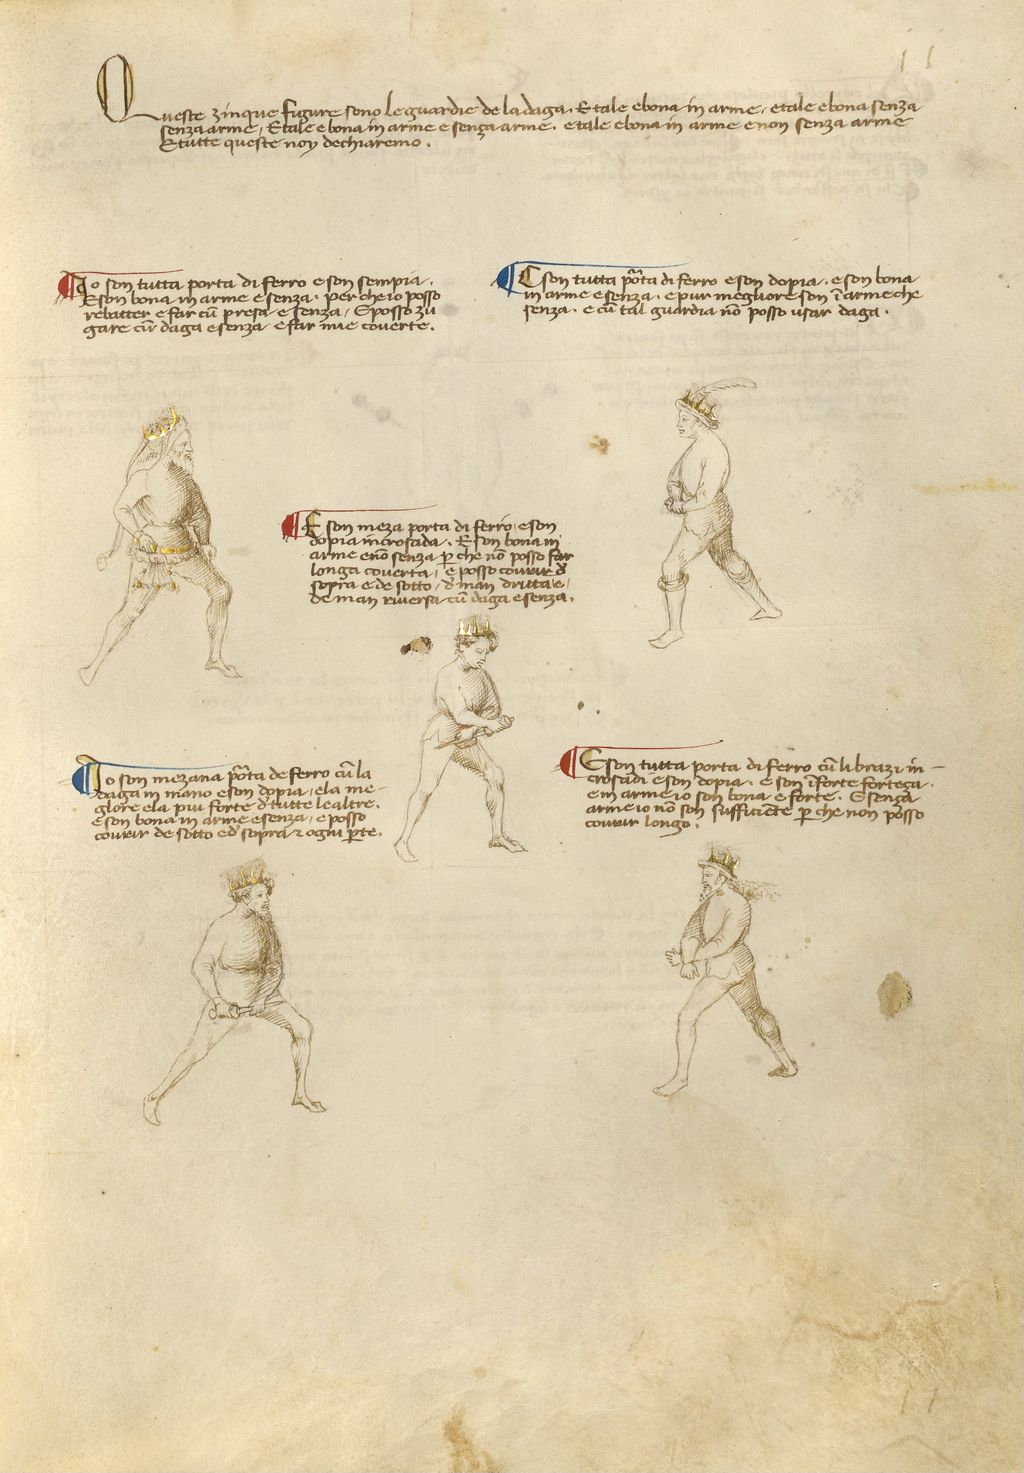 Queste zinque figure sono le guardie de la daga. E tale e bona in arme, e tale e bona senza
senza arme, E tale e bona in arme e senza arme. e tale e bona in arme e non senza arme
E tutte queste noy dechiaremo.
Io son tutta porta di ferro e son sempia.
E son bona in arme e senza. per che io posso
rebatter e far cū presa e senza, E posso zu
gare cū daga e senza e far mie couerte.
E son tutta pōta di ferro e son dopia. e son bona
in arme e senza. e pur megliore son ī arme che
senza. e cū tal guardia nō posso usar daga.
E son meza porta di ferro, e son
dopia incrosada. E son bona in
arme e nō senza ꝑ che nō posso far
longa couerta, e posso courir d̄
sopra e de sotto, d̄ man dritta e,
de man riuersa cū daga e senza.
Io son mezana pōta de ferro cū la
daga in mano e son dopia, e la me-
glore e la piu forte d̄ tutte le altre.
e son bona in arme e senza, e posso
courir de sotto ed sopra ⁊ ogni ꝑte.
E son tutta porta di ferro cū li brazzi in-
crosadi e son dopia. e son ī forte forteza.
e in arme io son bona e forte. E senza
arme io nō son sufficiēte ꝑ che non posso
courir longo.
11